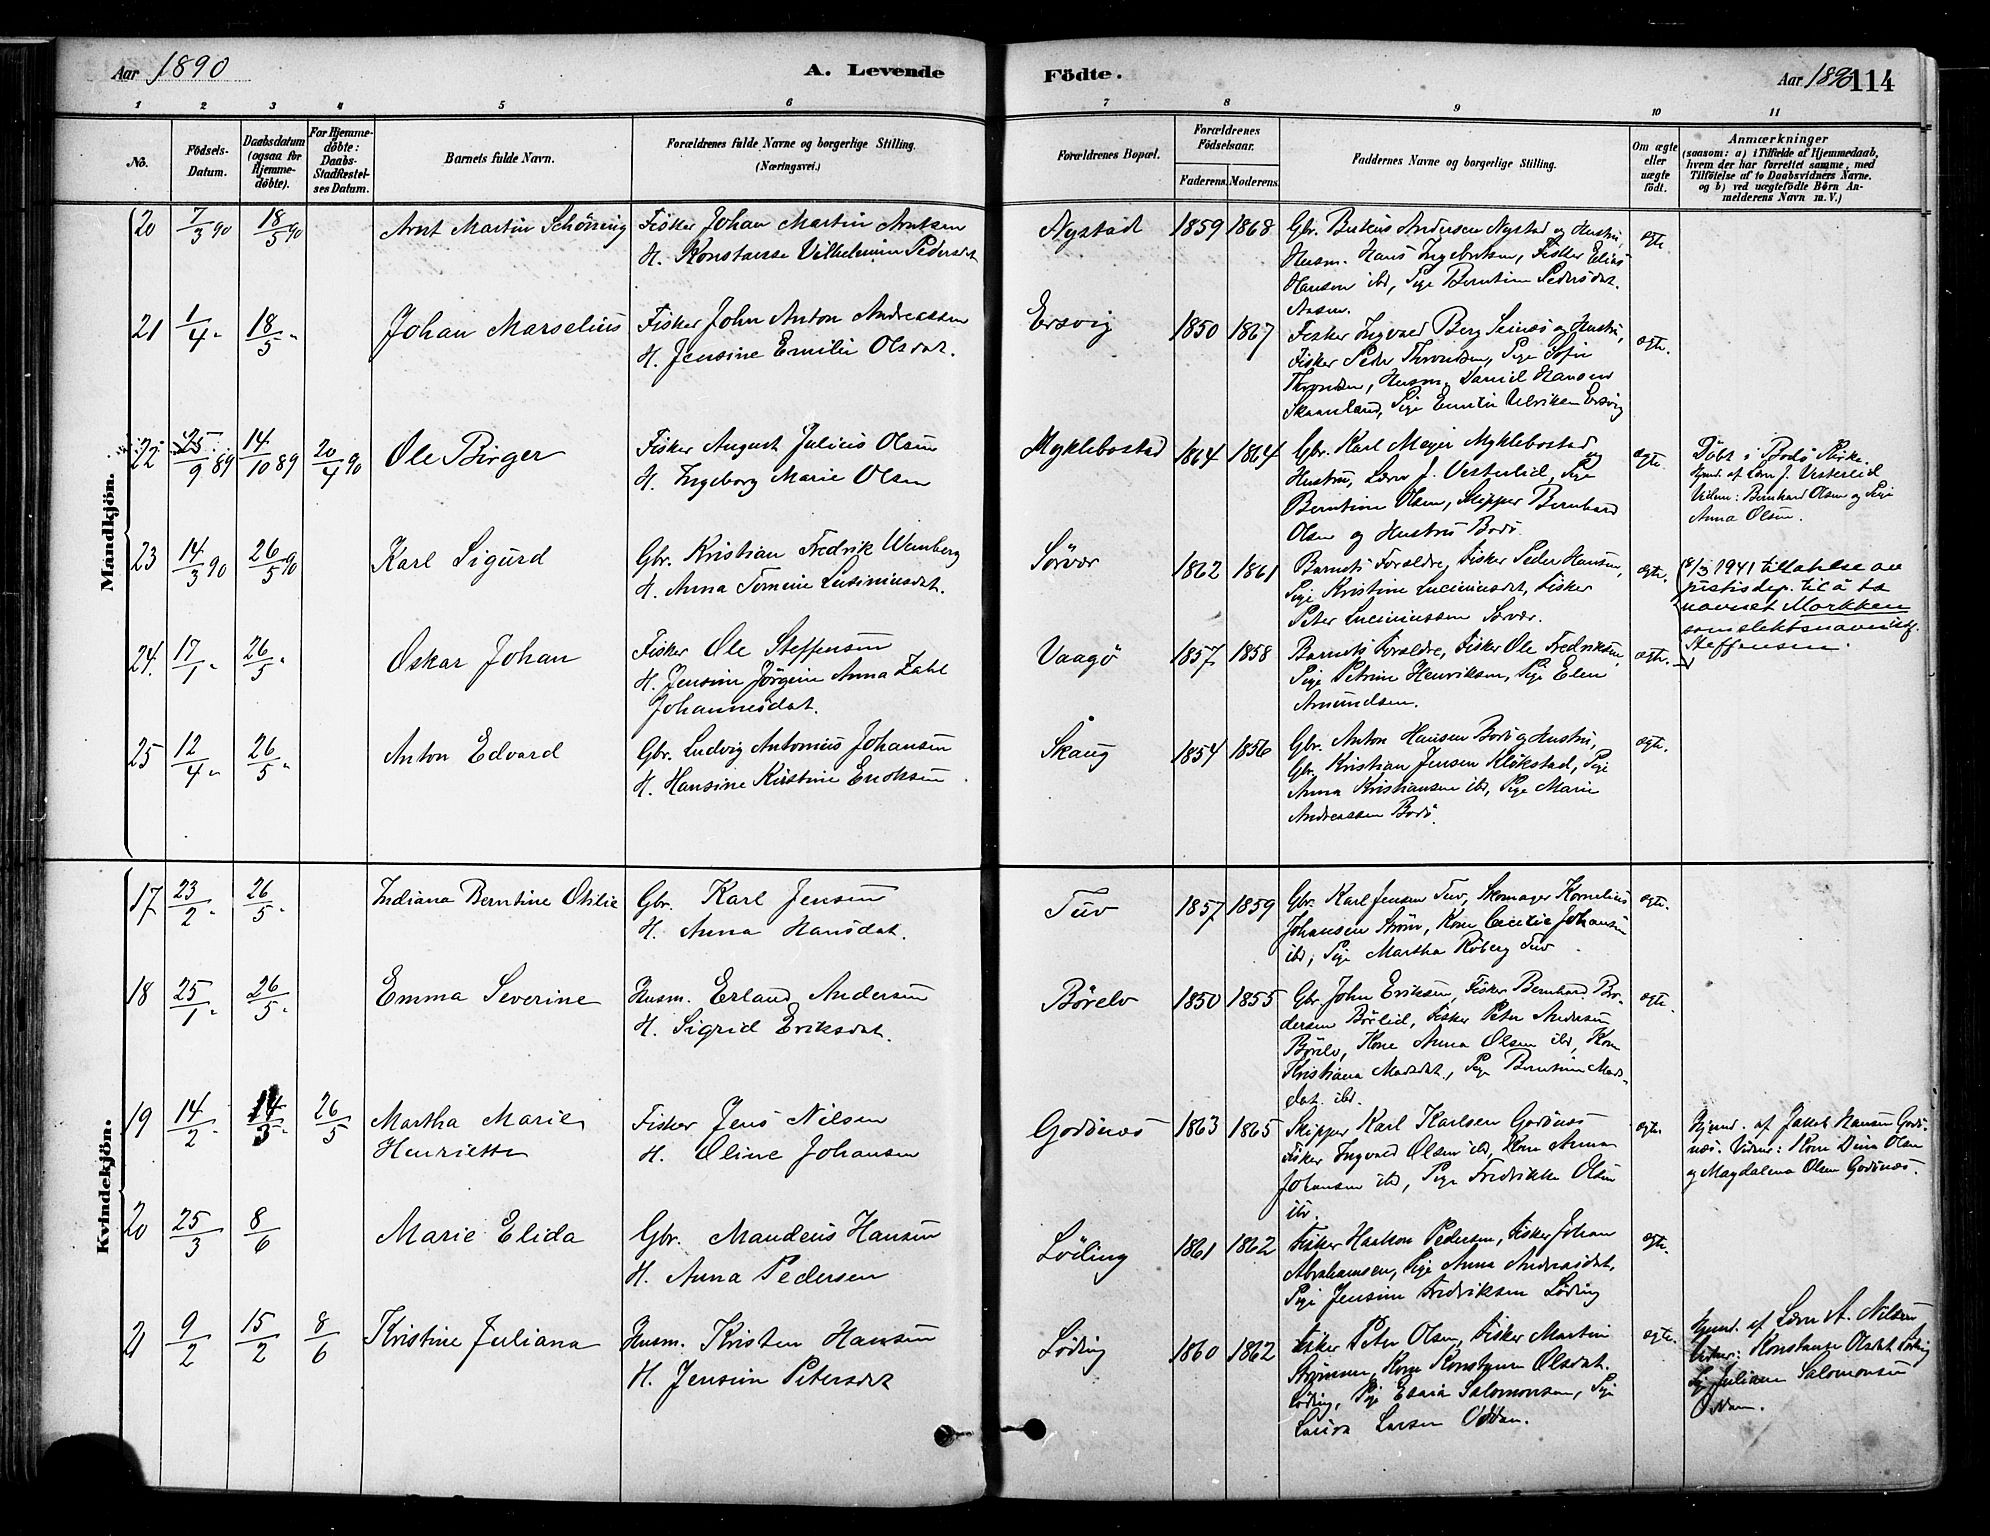 Aar 1890
A. Levende
Födte.
Aar 1890
114
1 2 3 4 5 6 7 8 9 10 11
No.
Födsels-
Datum.
Daabsdatum
(ogsaa for
Hjemme-
döbte).
For Hjemme-
döbte:
Daabs-
Stadfæstel-
ses Datum.
Barnets fulde Navn.
Forældrenes fulde Navne og borgerlige Stilling.
(Næringsvei.)
Forældrenes Bopæl.
Forældrenes
Födselsaar.
Faderens. Moderens.
Faddernes Navne og borgerlige Stilling.
Om ægte
eller
uægte
födt.
Anmærkninger
(saasom: a) i Tilfælde af Hjemmedaab,
hvem der har forrettet samme, med
Tilföielse af to Daabsvidners Navne,
og b) ved uægtefödte Börn An-
melderens Navn m. V.)
Mandkjön.
20 7/3 90 18/5 90 Arnt Martin Schöning
Fisker Johan Martin Arntsen
H. Konstanse Vilhelmine Pedersdat
Nystad 1859 1868
Gbr. Andersen Nystad og Hustru,
Husm. Hans Ingebriktsen, Fisker Elias
Hansen ibd, Pige Berntine Pedersdat.
ægte.
21 1/4 " 18/5 " Johan Marselius
Fisker John Anton Andreassen
H. Jensine Emilie Olsdat.
Ersvig 1850 1867
Fisker Ingvald Berg Seines og Hustru,
Fisker Peder Throndsen, Pige Sofie
Throndsen, Husm. Daniel Hansen
Skaanland, Pige Emilie Ulriksen Ersvig
ægte.
22 25/9 89 14/10 89 20/4 90 Ole Birger
Fisker August Julius Olsen
H. Ingeborg Marie Olsen
Myklebostad 1864 1864
Gbr. Karl Meyer Myklebostad og
Hustru, Lærer J. Vesterlid, Pige
Berntine Olsen, Skipper Bernhard
Olsen og Hustru Bodö.
ægte.
Döbt i Bodö Kirke.
Hjemd. af Lærer J. Vesterlid
Vidner: Bernhard Olsen og Pige
Anna Olsen.
23 14/3 90 26/5 90 Karl Sigurd
Gbr. Kristian Fredrik Wenberg
H. Anna Tomine Lusiniusdat.
Sörvær 1862 1861
Barnets Forældre, Fisker Peder Hansen,
Pige Kristine Luciniusdat, Fisker
Peter Luciniussen Sörvær.
ægte.
/3 1941 tillatelse av
justisdep. til å ta
navnet Morkken
som slektsnavn istf.
Steffensen.
24. 17/1 " 26/5 " Oskar Johan
Fisker Ole Steffensen
H. Jensine Jörgine Anna Zahl
Johannesdat.
Vaagö 1857 1858
Barnets Forældre, Fisker Ole Fredriksen,
Pige Petrine Henriksen, Pige Elen
Amundsen.
ægte.
25 12/4 " 26/5 " Anton Edvard
Gbr. Ludvig Antonius Johansen
H. Hansine Kirstine Enoksen.
Skaug 1854 1856
Gbr. Anton Hansen Bodö og Hustru,
Gbr. Kristian Jensen Klökstad, Pige
Anna Kristiansen ibd, Pige Marie
Andreassen Bodö.
ægte.
Kvindekjön.
17 23/2 " 26/5 " Indiana Berntine Otilie
Gbr. Karl Jensen
H. Anna Hansdat.
Tuv 1857 1859
Gbr. Karl Jensen Tuv, Skomager Kornelius
Johansen Ström, Kone Cecilie Johansen
ibd, Pige Martha Röberg Tuv
ægte.
18 25/1 " 26/5 " Emma Severine
Husm. Erland Andersen
H. Sigrid Eriksdat.
Börelv 1850 1855
Gbr. John Eriksen, Fisker Bernhard Pe-
dersen Börlid, Fisker Peter Andersen
Börelv, Kone Anna Olsen ibd, Kone
Kristiana Madsdat, Pige Berntine Mads-
dat. ibd.
ægte.
19 14/2 " 14/3 " 26/5 Martha Marie
Henriette
Fisker Jens Nilsen
H. Oline Johansen
Godönes 1863 1865
Skipper Karl Karlsen Godönes
Fisker Ingvald Olsen ibd, Kone Anna
Johansen ibd, Pige Fredrikke Olsen
ibd.
ægte.
Hjemd. af Jakob Hansen Godö-
næs. Vidner: Kone Dina Olsen
og Magdalena Olsen Godönæs.
20 25/3 8/6 Marie Elida
Gbr. Mandeus Hansen
H. Anna Pedersen
Löding 1861 1862
Fisker Haakon Pedersen, Fisker Johan
Abrahamsen, Pige Anna Andreasdat,
Pige Jensine Fredriksen Löding
ægte.
21 9/2 15/2 8/6 Kristine Juliana
Husm. Kristen Hansen
H. Jensine Petersdat
Löding 1860 1862
Fisker Peter Olsen, Fisker Martin
Strömmen, Kone Konstanse Olsdat.
Löding, Pige Salomonsen, Pige
Laura Larsen Oddan.
ægte.
Hjemd. af Lærer A. Nilsen
Vidner: Konstanse Olsdat Löding
og Juliane Salomonsen
Oddan.